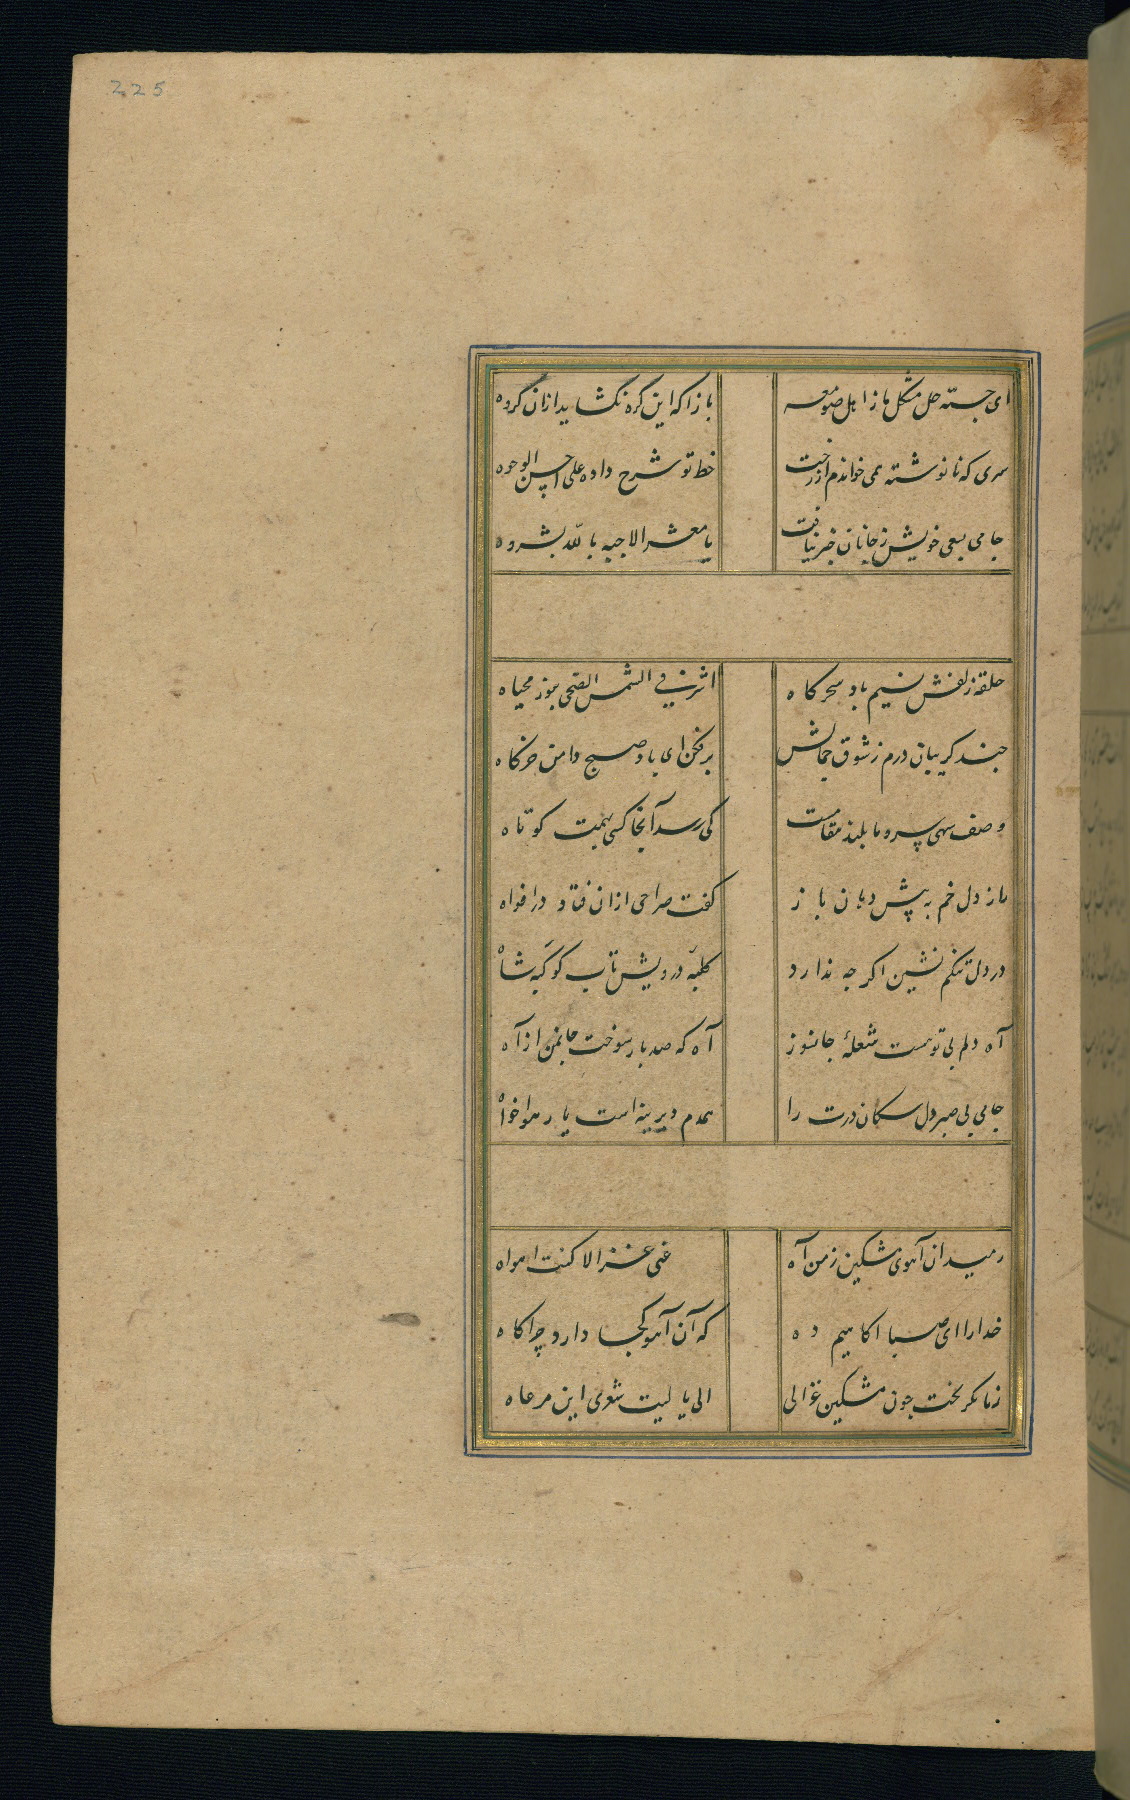 225
ای جسته حل مشکل ما از اهل صومعه بازآ که این گره نگشاید ازان گروه
سری که نانوشته همی خواندم از رخت خط تو شرح داده علی احسن الوجوه
جامی بسعی خویش ز جانان خبر نیافت یا معشر الاحبه بالله بشروه
حلقه زلفش نسیم باد سحرکاه اشرق فی الشمس الضحی بنور محیاه
چند کریبان درم ز شوق جمالش برفکن ای باد صبح دامن خرکاه
وصف سهی سرو ما بلند مقامست کی رسد آنجا کسی بهمت کوتاه
راز دل خم به پیش دهان باز کفت صراحی ازان فتاد در افواه
در دل تنکم نشین اکر چه ندارد کلبه درویش تاب کوکبه شاه
آه دلم بی توهست شعله جانسوز آه که صد بار سوخت جان من از آه
جامی بی صبر دل سکان درت را همدم دیرینه است یار هواخواه
رمید ان آهوی مشکین ز من آه غنی غزالا کنت اهواه
خدارا ای صبا اکاهیم ده که آن آهو کجا دارد چراکاه
ز ما بکریخت چون مشکین غزالی الی یا لیت شعری این مرعاه